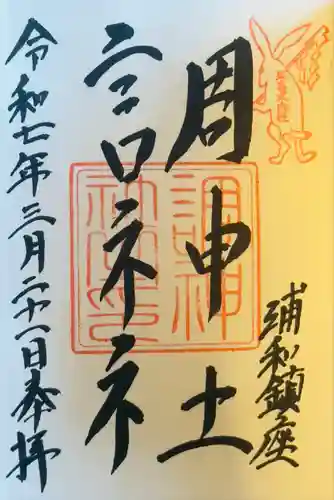 浦和鎮座
調神社
令和七年三月二十一日奉拝